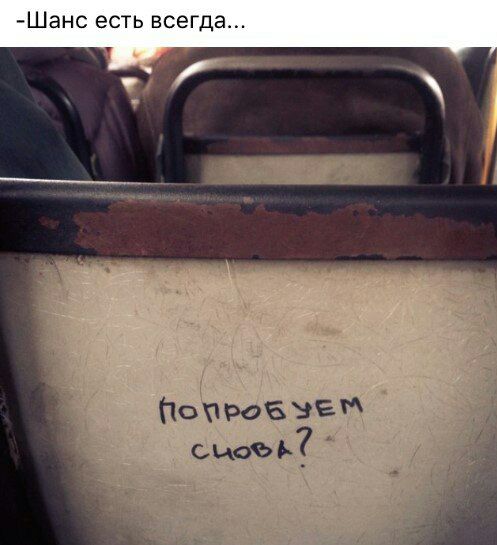 -Шанс есть всегда...
ПОПРОБУЕМ
СНОВА?